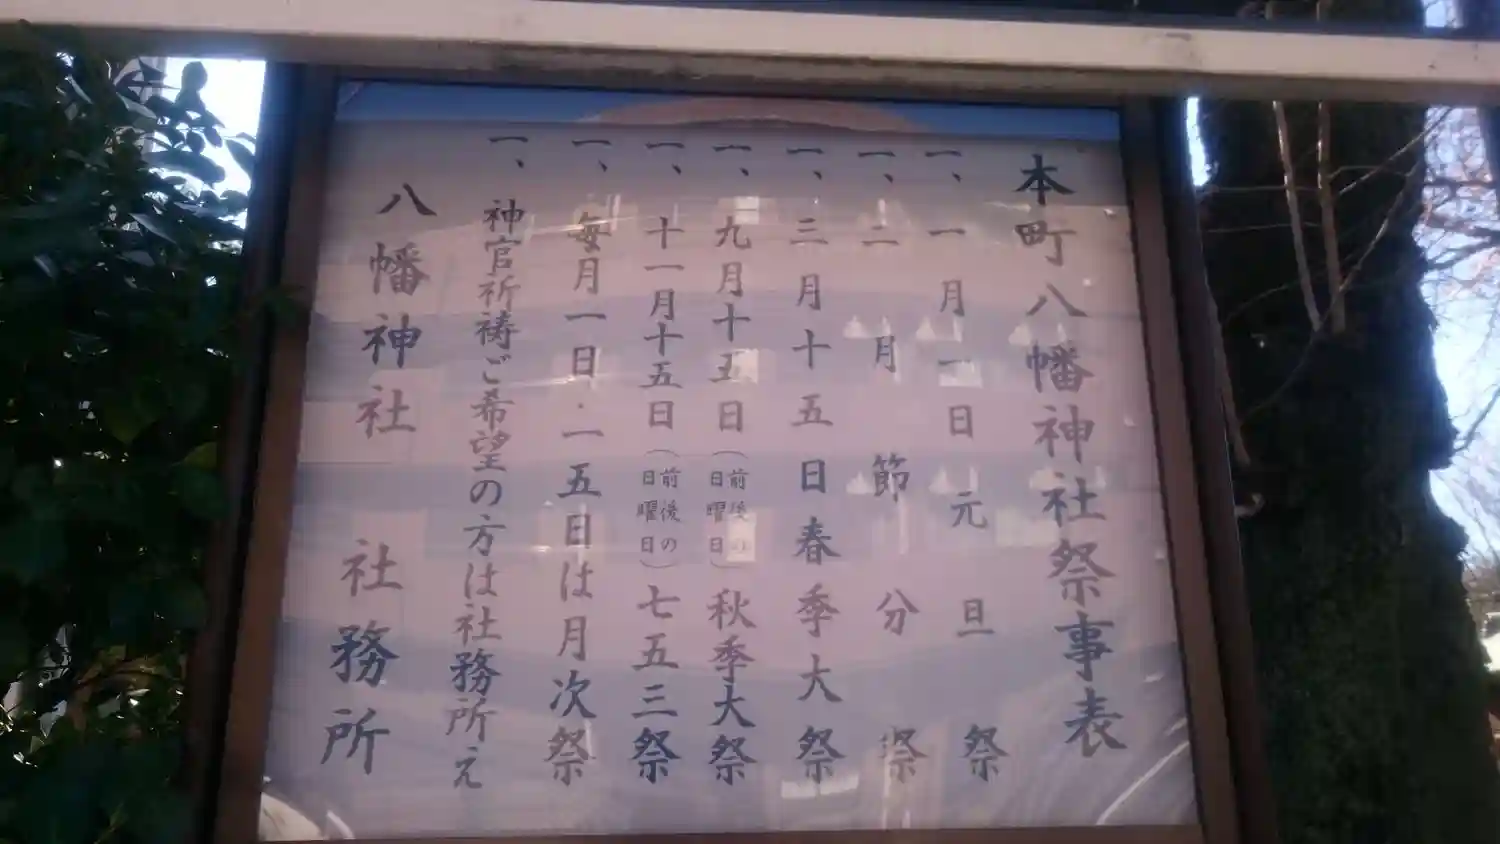 本町八幡神社祭事表
一、一月一日元旦祭
一、二月節分祭
一、三月十五日春季大祭
一、九月十五日（前後の日曜日）秋季大祭
一、十一月十五日（前後の日曜日）七五三祭
一、毎月一日・一五日は月次祭
一、神官祈祷ご希望の方は社務所え
八幡神社 社務所